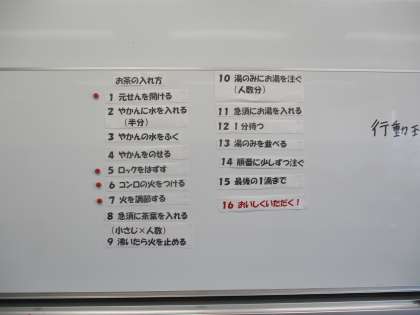 お茶の入れ方
1 元せんを開ける
2 やかんに水を入れる
（半分）
3 やかんの水をふく
4 やかんをのせる
5 ロックをはずす
6 コンロの火をつける
7 火を調節する
8 急須に茶葉を入れる
（小さじ×人数）
9 沸いたら火を止める
10 湯のみにお湯を注ぐ
（人数分）
11 急須にお湯を入れる
12 1分待つ
13 湯のみを並べる
14 順番に少しずつ注ぐ
15 最後の1滴まで
16 おいしくいただく！
行動